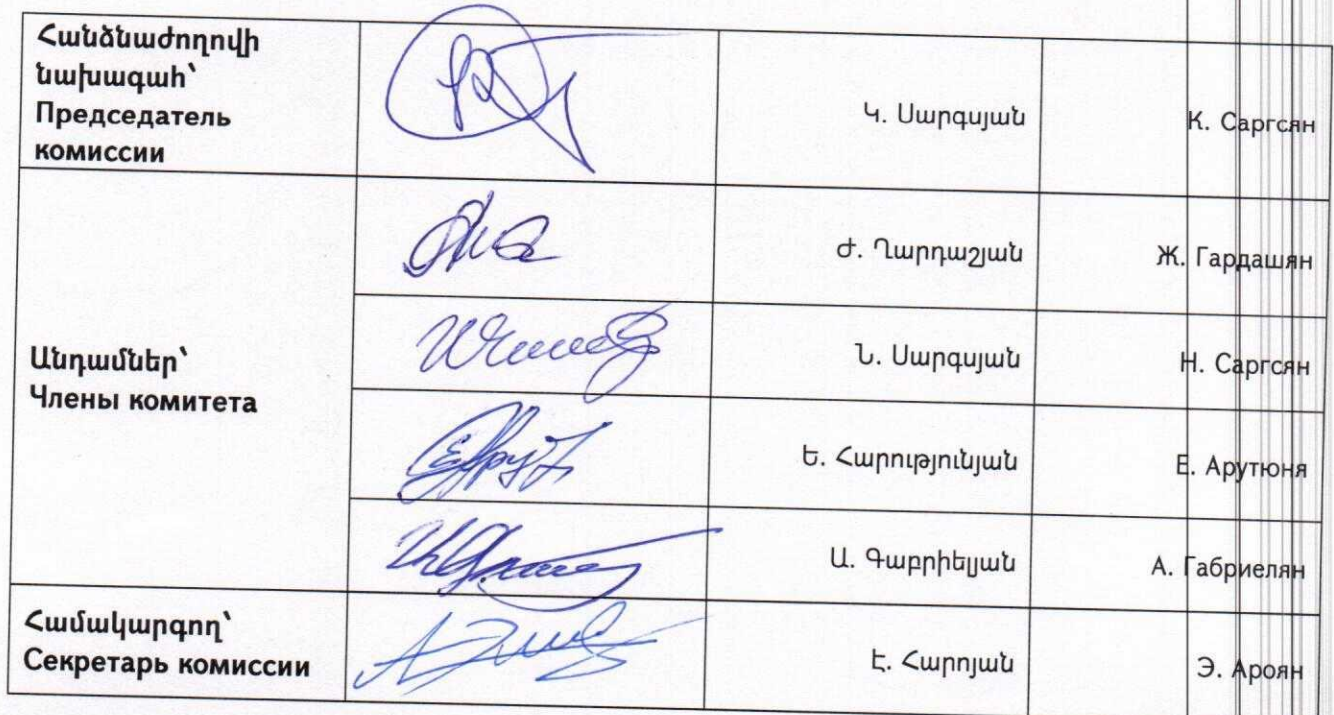 Հանձնաժողովի
նախագահ՝
Председатель
комиссии
Կ. Սարգսյան
К. Саргсян
Ժ. Ղարդաշյան
Ж. Гардашян
Անդամներ՝
Члены комитета
Ն. Սարգսյան
Н. Саргсян
Ե. Հարությունյան
Е. Арутюня
Ա. Գաբրիելյան
А. Габриелян
Համակարգող՝
Секретарь комиссии
Է. Հարոյան
Э. Ароян